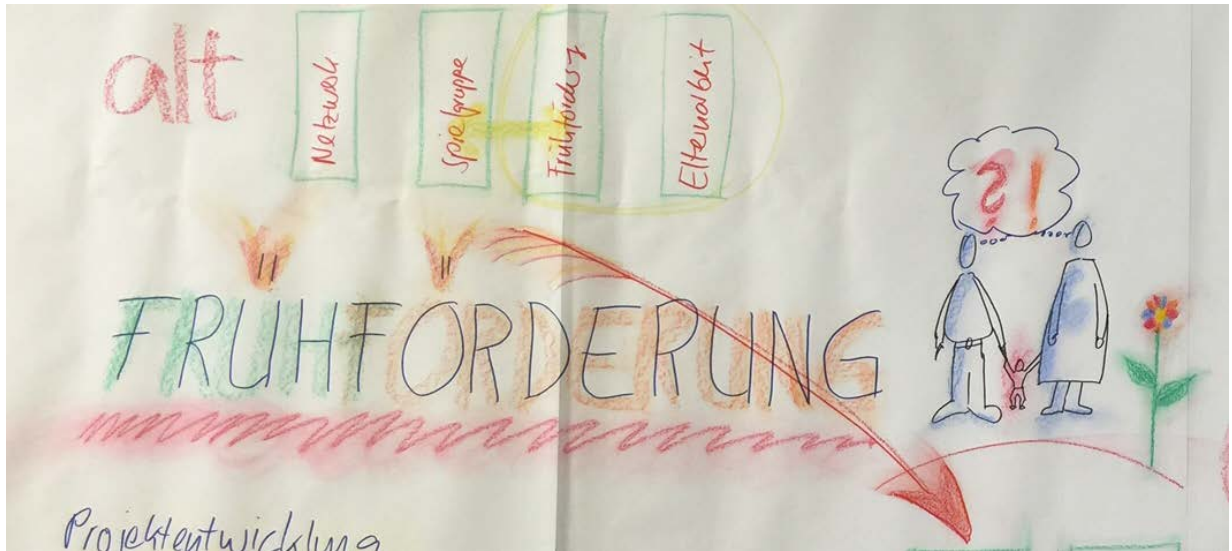 alt
Netzwerk
Spielgruppe
Frühförderung
Elternarbeit
?!
FRÜHFÖRDERUNG
Projektentwicklung